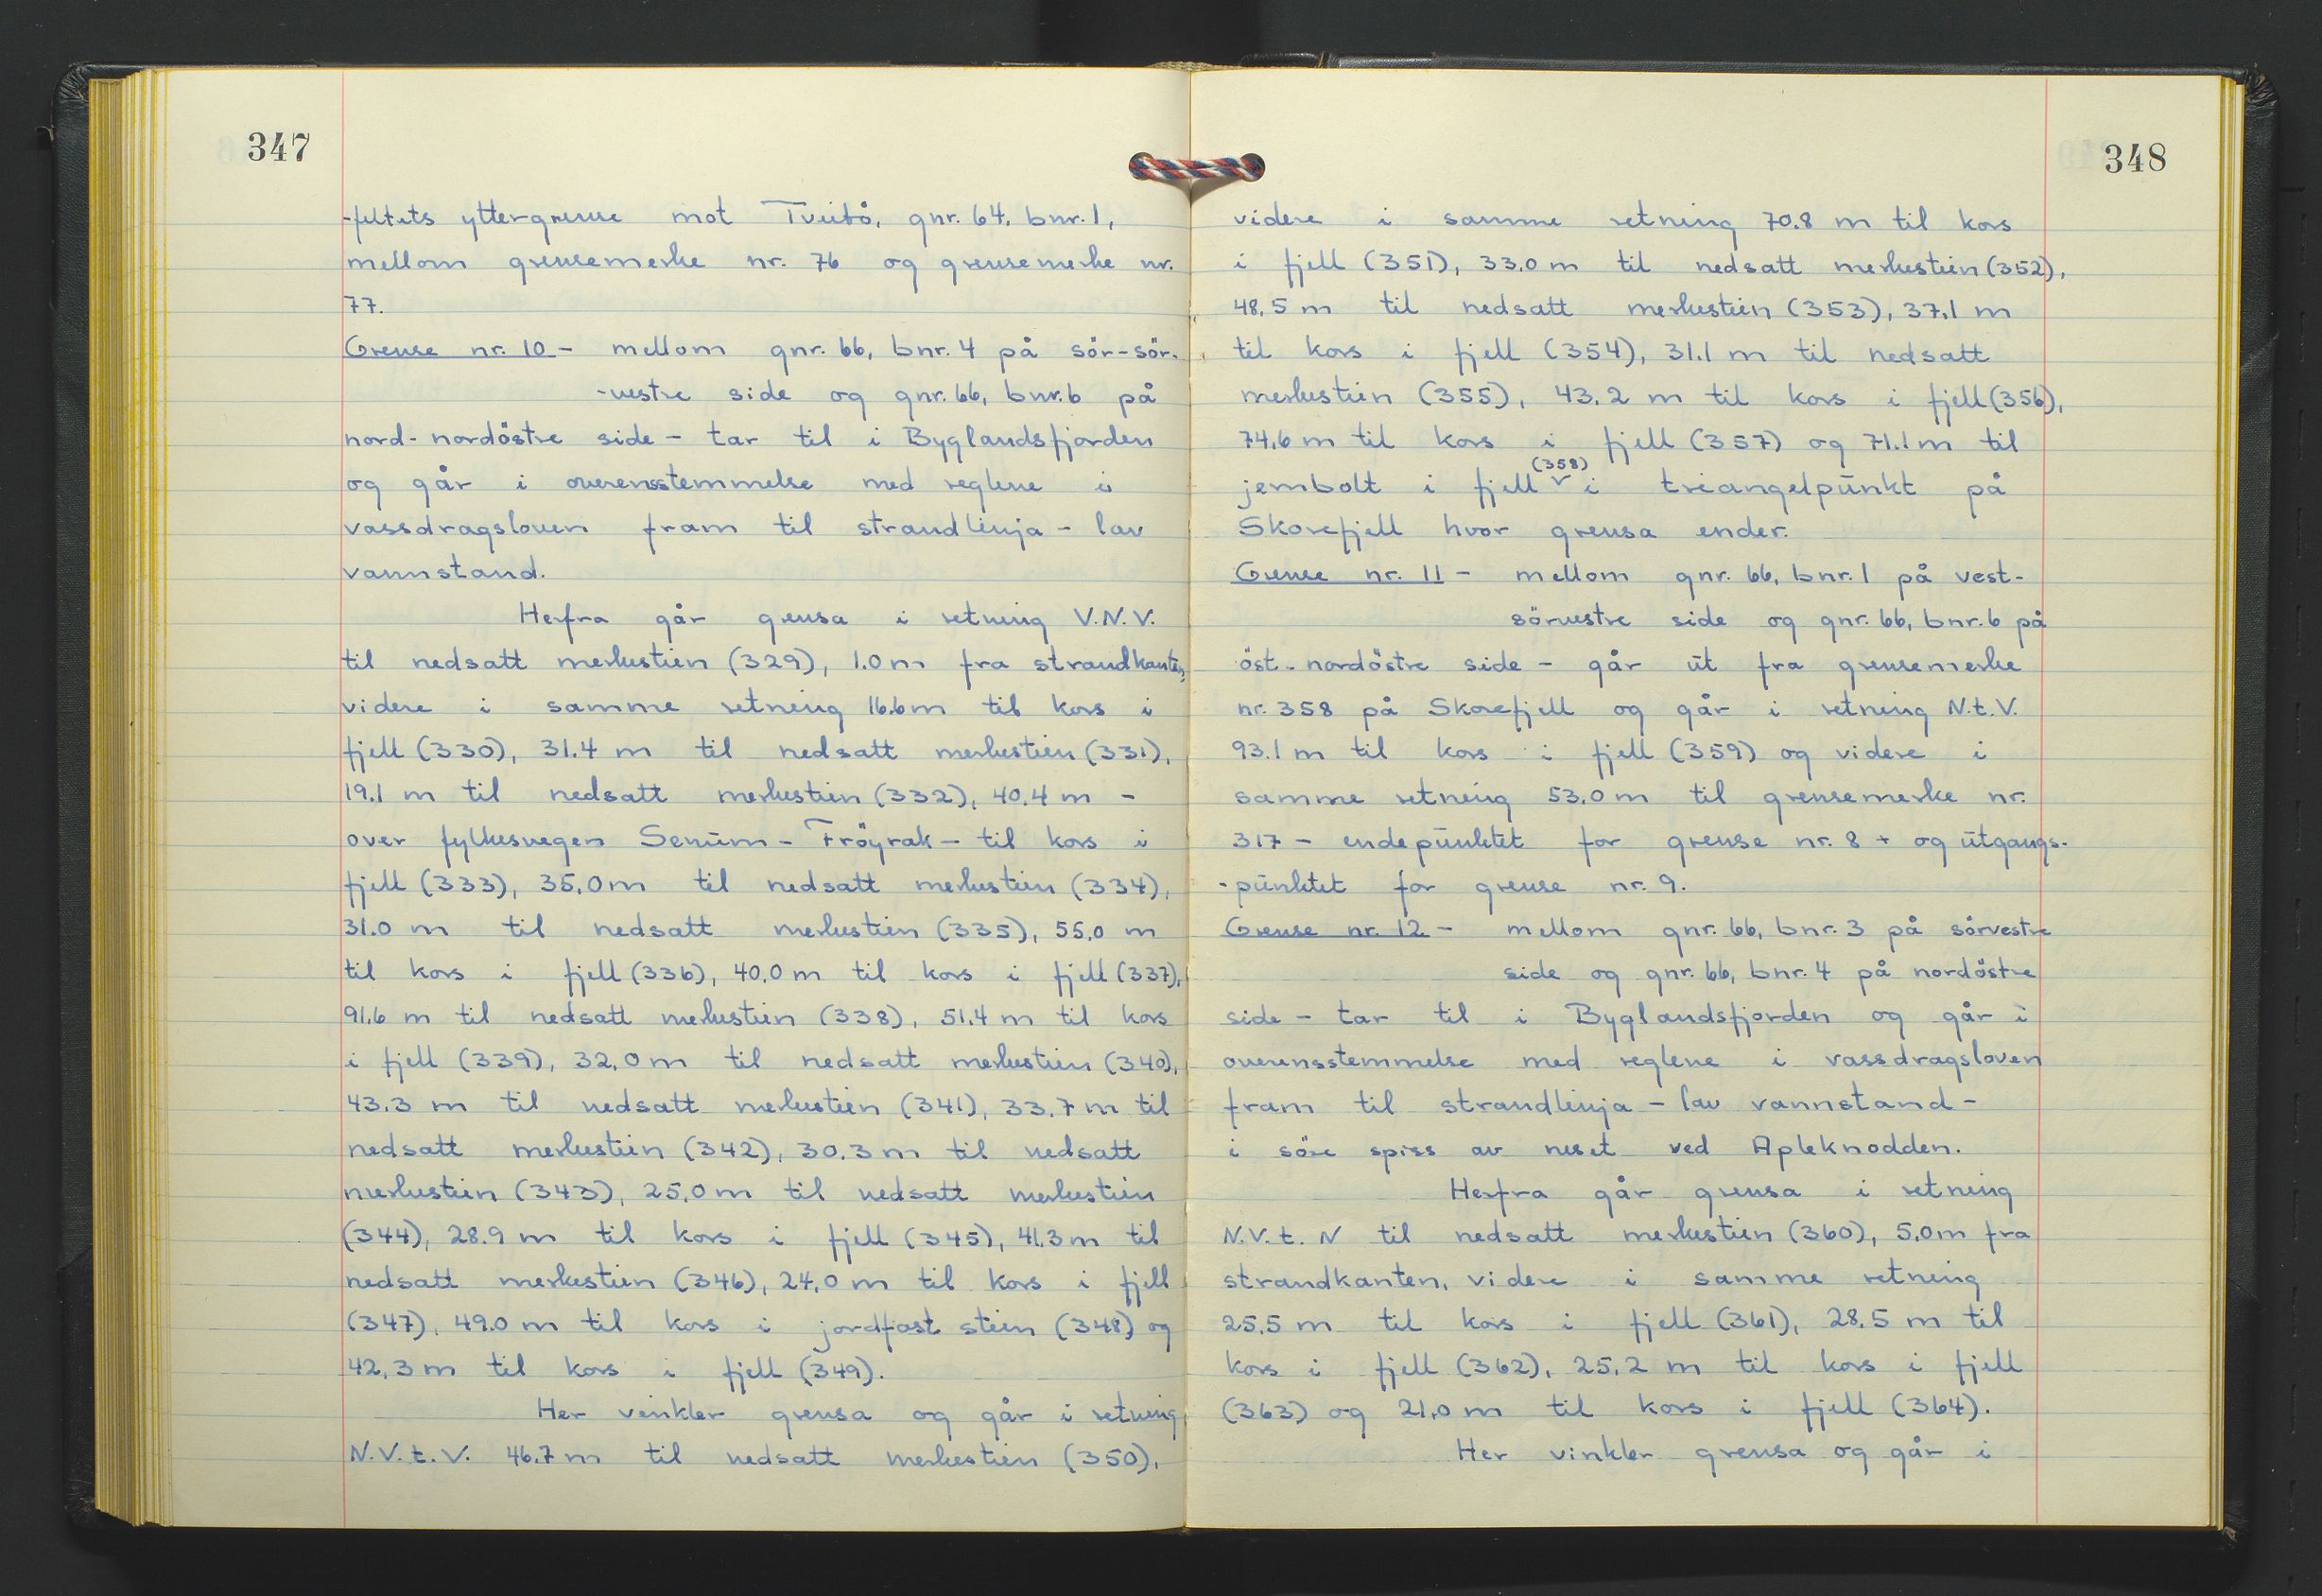 347
-feltets yttergrense mot Tveitå, gnr. 64, bnr. 1,
mellom grensemerke nr. 76 og grensemerke nr.
77.
Grense nr. 10 - mellom gnr. 66, bnr. 4 på sör-sör-
-vestre side og gnr. 66, bnr. 6 på
nord-nordöstre side - tar til i Byglandsfjorden
og går i overensstemmelse med reglene i
vassdragsloven fram til strandlinja - lav
vannstand.
Herfra går grensa i retning V.N.V.
til nedsatt merkestein (329), 1.0 m fra strandkanten,
videre i samme retning 16.6 m til kors i
fjell (330), 31.4 m til nedsatt merkestein (331),
19.1 m til nedsatt merkestein (332), 40.4 m -
over fylkesvegen Senum - Fröyrak - til kors i
fjell (333), 35,0 m til nedsatt merkestein (334),
31.0 m til nedsatt merkestein (335), 55,0 m
til kors i fjell (336), 40,0 m til kors i fjell (337),
91.6 m til nedsatt merkestein (338), 51.4 m til kors
i fjell (339), 32,0 m til nedsatt merkestein (340),
43.3 m til nedsatt merkestein (341), 33.7 m til
nedsatt merkestein (342), 30.3 m til nedsatt
merkestein (343), 25,0 m til nedsatt merkestein
(344), 28.9 m til kors i fjell (345), 41.3 m til
nedsatt merkestein (346), 24,0 m til kors i fjell
(347), 49.0 m til kors i jordfast stein (348) og
42,3 m til kors i fjell (349).
Her vinkler grensa og går i retning
N.V.t.V. 46.7 m til nedsatt merkestein (350),
348
videre i samme retning 70.8 m til kors
i fjell (351), 33,0 m til nedsatt merkestein (352),
48,5 m til nedsatt merkestein (353), 37,1 m
til kors i fjell (354), 31.1 m til nedsatt
merkestein (355), 43.2 m til kors i fjell (356),
74,6 m til kors i fjell (357) og 71.1 m til
(358)
jernbolt i fjell v i triangelpunkt på
Skorefjell hvor grensa ender.
Grense nr. 11 - mellom gnr. 66, bnr. 1 på vest-
sörvestre side og gnr. 66, bnr. 6 på
öst-nordöstre side - går ut fra grensemerke
nr. 358 på Skorefjell og går i retning N.t.V.
93.1 m til kors i fjell (359) og videre i
samme retning 53,0 m til grensemerke nr.
317 - endepunktet for grense nr. 8 + og utgangs-
-punktet for grense nr. 9.
Grense nr. 12 - mellom gnr. 66, bnr. 3 på sörvestre
side og gnr. 66, bnr. 4 på nordöstre
side - tar til i Byglandsfjorden og går i
overensstemmelse med reglene i vassdragsloven
fram til strandlinja - lav vannstand -
i söre spiss av neset ved Apleknodden.
Herfra går grensa i retning
N.V.t. N til nedsatt merkestein (360), 5,0 m fra
strandkanten, videre i samme retning
25,5 m til kors i fjell (361), 28,5 m til
kors i fjell (362), 25,2 m til kors i fjell
(363) og 21,0 m til kors i fjell (364).
Her vinkler grensa og går i